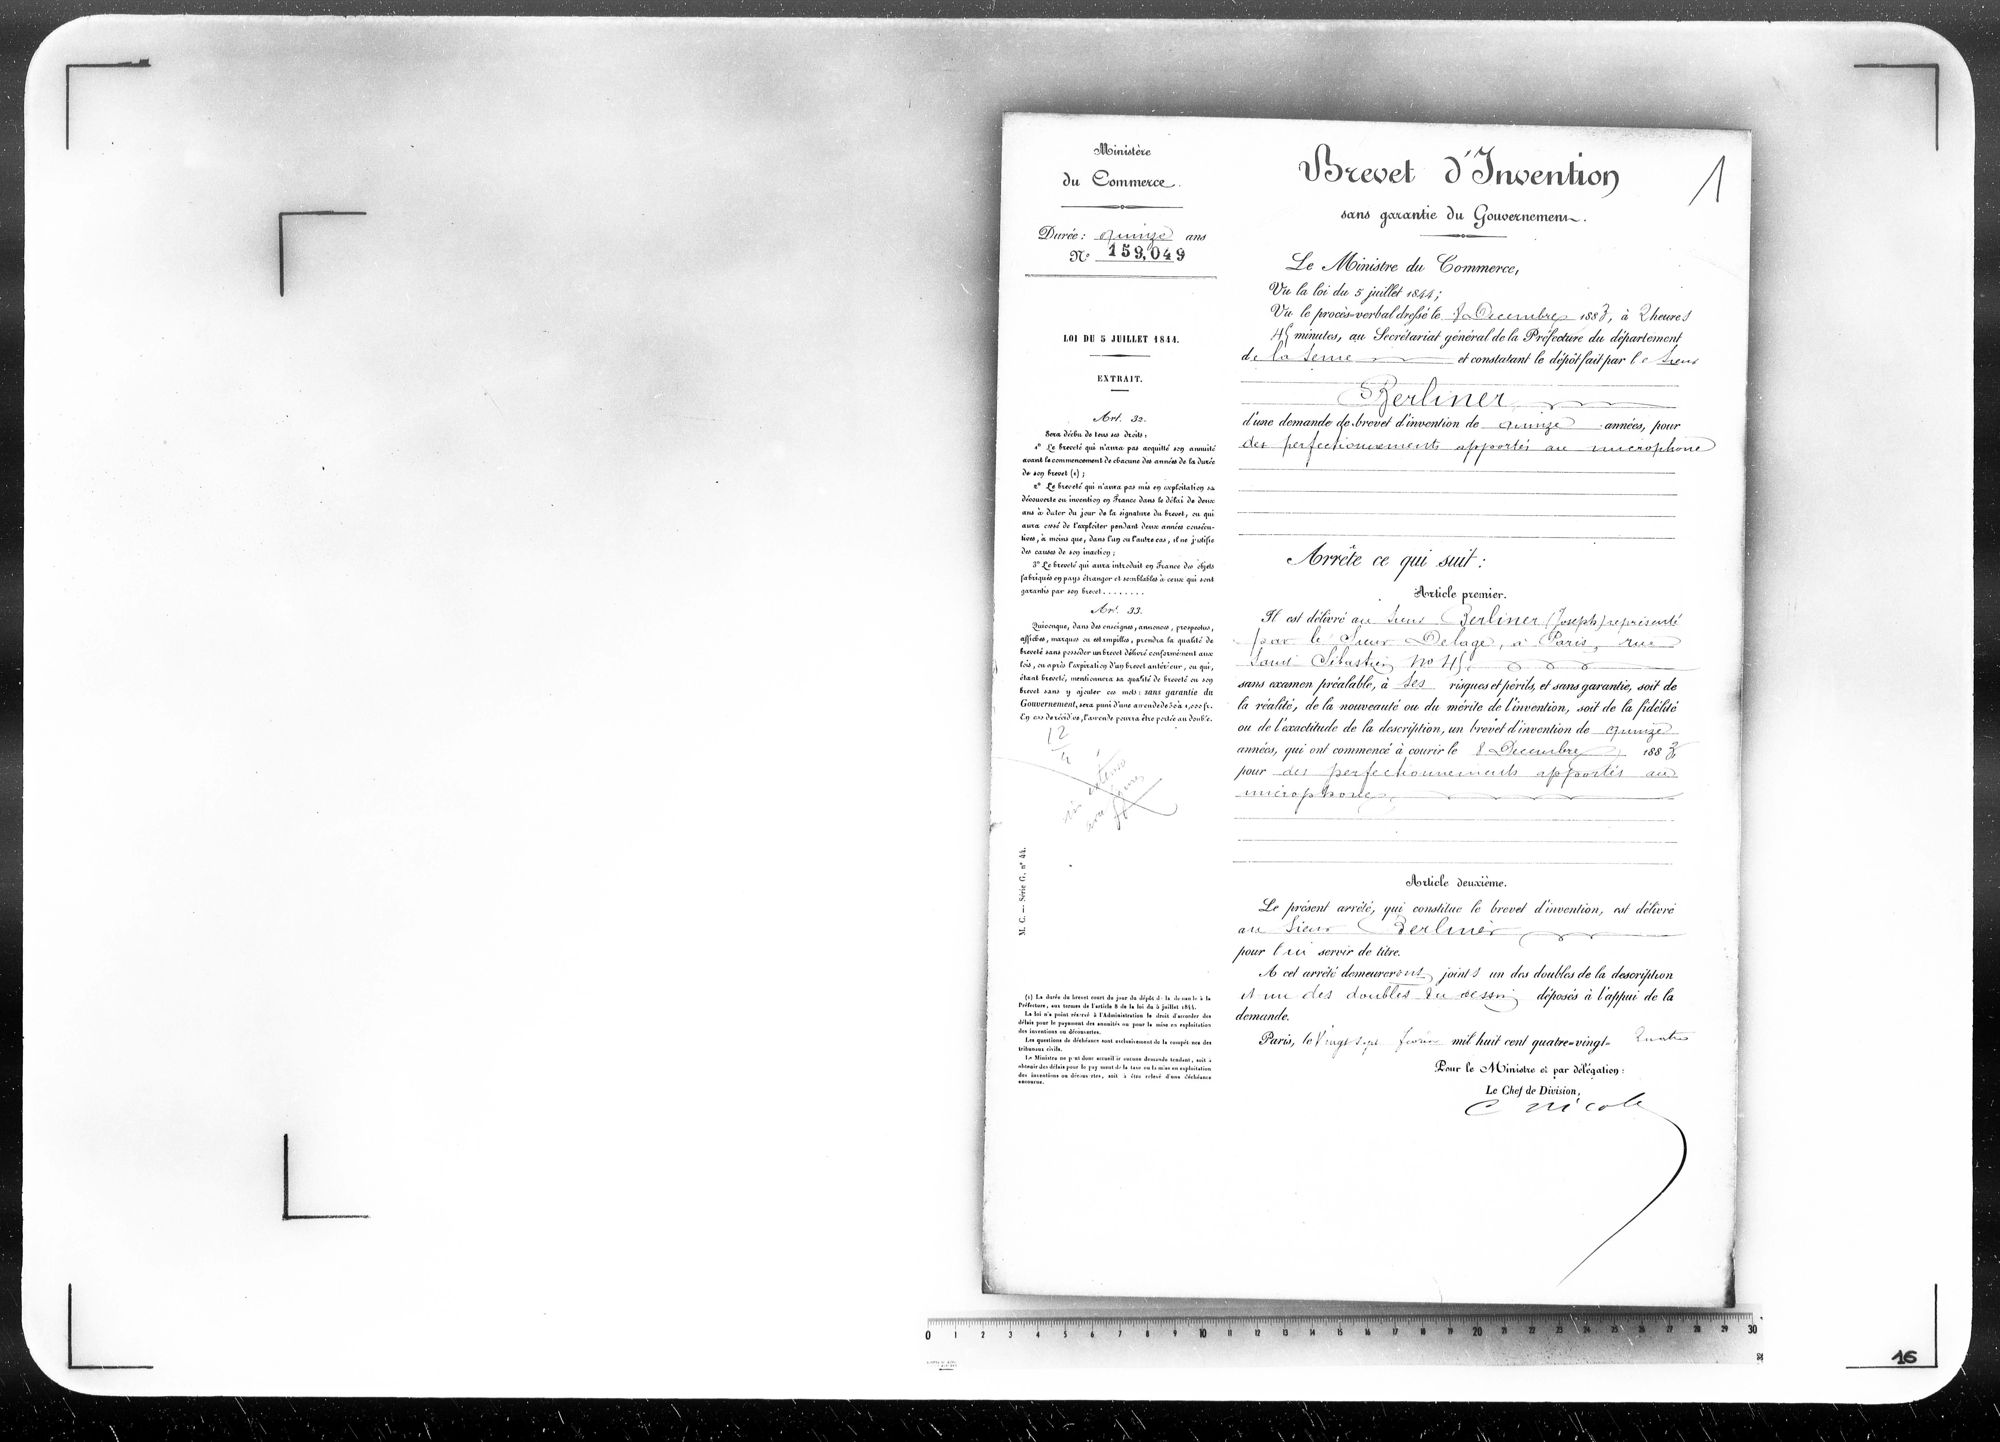 Ministère
du Commerce.
Durée: quinze ans
N° 159,049
LOI DU 5 JUILLET 1844.
EXTRAIT.
Art. 32.
Sera déchu de tous ses droits:
1° Le breveté qui n'aura pas acquitté son annuité
avant le commencement de chacune des années de la durée
de son brevet (1);
2° Le breveté qui n'aura pas mis en exploitation sa
découverte ou invention en France dans le délai de deux
ans à dater du jour de la signature du brevet, ou qui
aura cessé de l'exploiter pendant deux années consécu-
tives, à moins que, dans l'un ou l'autre cas, il ne justifie
des causes de son inaction;
3° Le breveté qui aura introduit en France des objets
fabriqués en pays étranger et semblables à ceux qui sont
garantis par son brevet........
Art. 33.
Quiconque, dans des enseignes, annonces, prospectus,
affiches, marques ou estampilles, prendra la qualité de
breveté sans posséder un brevet délivré conformément aux
lois, ou après l'expiration d'un brevet antérieur, ou qui,
étant breveté, mentionnera sa qualité de breveté ou son
brevet sans y ajouter ces mots: sans garantie du
Gouvernement, sera puni d'une amende de 50 à 1,000 fr.
En cas de récidive, l'amende pourra être portée au double.
12
M. C. — Série G, n° 44.
(1) La durée du brevet court du jour du dépôt de la demande à la
Préfecture, aux termes de l'article 8 de la loi du 5 juillet 1844.
La loi n'a point réservé à l'Administration le droit d'accorder des
délais pour le payement des annuités ou pour la mise en exploitation
des inventions ou découvertes.
Les questions de déchéance sont exclusivement de la compétence des
tribunaux civils.
Le Ministre ne peut donc accueillir aucune demande tendant, soit à
obtenir des délais pour le payement de la taxe ou la mise en exploitation
des inventions ou découvertes, soit à être relevé d'une déchéance
encourue.
Brevet d'Invention
1
sans garantie du Gouvernement.
Le Ministre du Commerce,
Vu la loi du 5 juillet 1844;
Vu le procès-verbal dressé le 8 Décembre 1883, à 2 heures
45 minutes, au Secrétariat général de la Préfecture du département
de la Seine et constatant le dépôt fait par le Sieur
Berliner
d'une demande de brevet d'invention de quinze années, pour
des perfectionnements apportés au microphone
Arrête ce qui suit:
Article premier.
Il est délivré au Sieur Berliner (Joseph) représenté
par le Sieur Delage, à Paris, rue
Saint Sébastien No 45.
sans examen préalable, à ses risques et périls, et sans garantie, soit de
la réalité, de la nouveauté ou du mérite de l'invention, soit de la fidélité
ou de l'exactitude de la description, un brevet d'invention de quinze
années, qui ont commencé à courir le 8 Décembre 1883
pour des perfectionnements apportés au
microphone.
Article deuxième.
Le présent arrêté, qui constitue le brevet d'invention, est délivré
au Sieur Berliner
pour lui servir de titre.
A cet arrêté demeureront joints un des doubles de la description
et un des doubles du dessin déposés à l'appui de la
demande.
Paris, le Vingt sept février mil huit cent quatre-vingt- quatre
Pour le Ministre et par délégation:
Le Chef de Division,
C Nicole
0 1 2 3 4 5 6 7 8 9 10 11 12 13 14 15 16 17 18 19 20 21 22 23 24 25 26 27 28 29 30
16